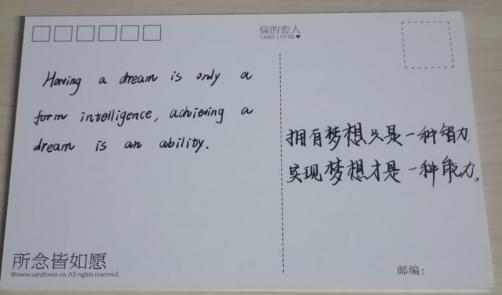 信的恋人
CARD LOVER♥
Having a dream is only a
form intelligence, achieving a
dream is an ability.
拥有梦想只是一种智力,
实现梦想才是一种能力。
所念皆如愿
©www.cardlover.cn All rights reserved.
邮编: